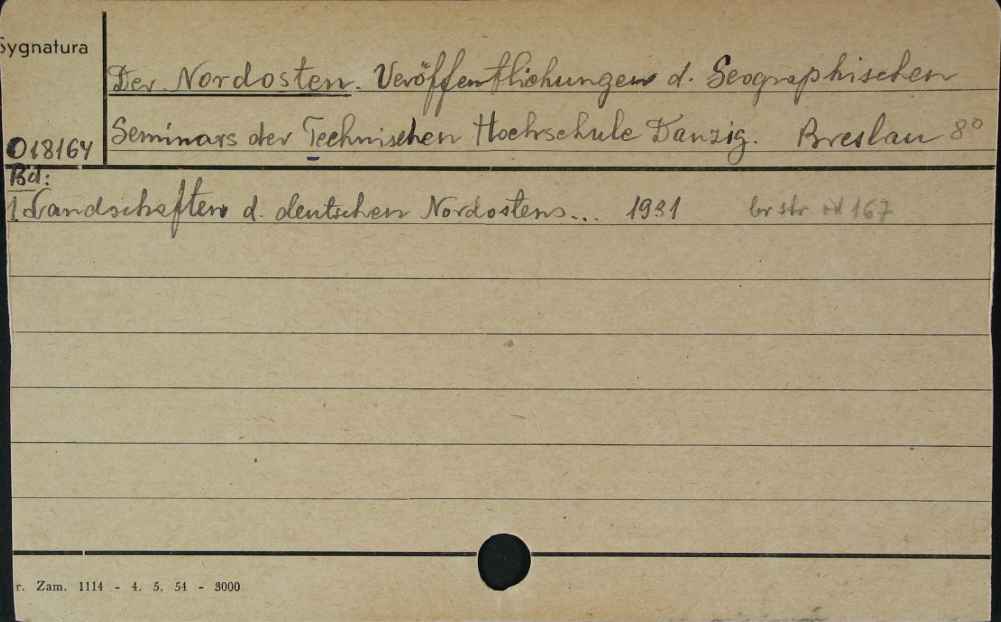 Sygnatura
Der Nordosten. Veröffentlichungen d. Geographischen
Seminars der Technischen Hochschule Danzig. Breslau 8°
018164
Bd:
1. Landschaften d. deutschen Nordostens... 1931 br str od 167
r. Zam. 1114 - 4. 5. 54 - 3000